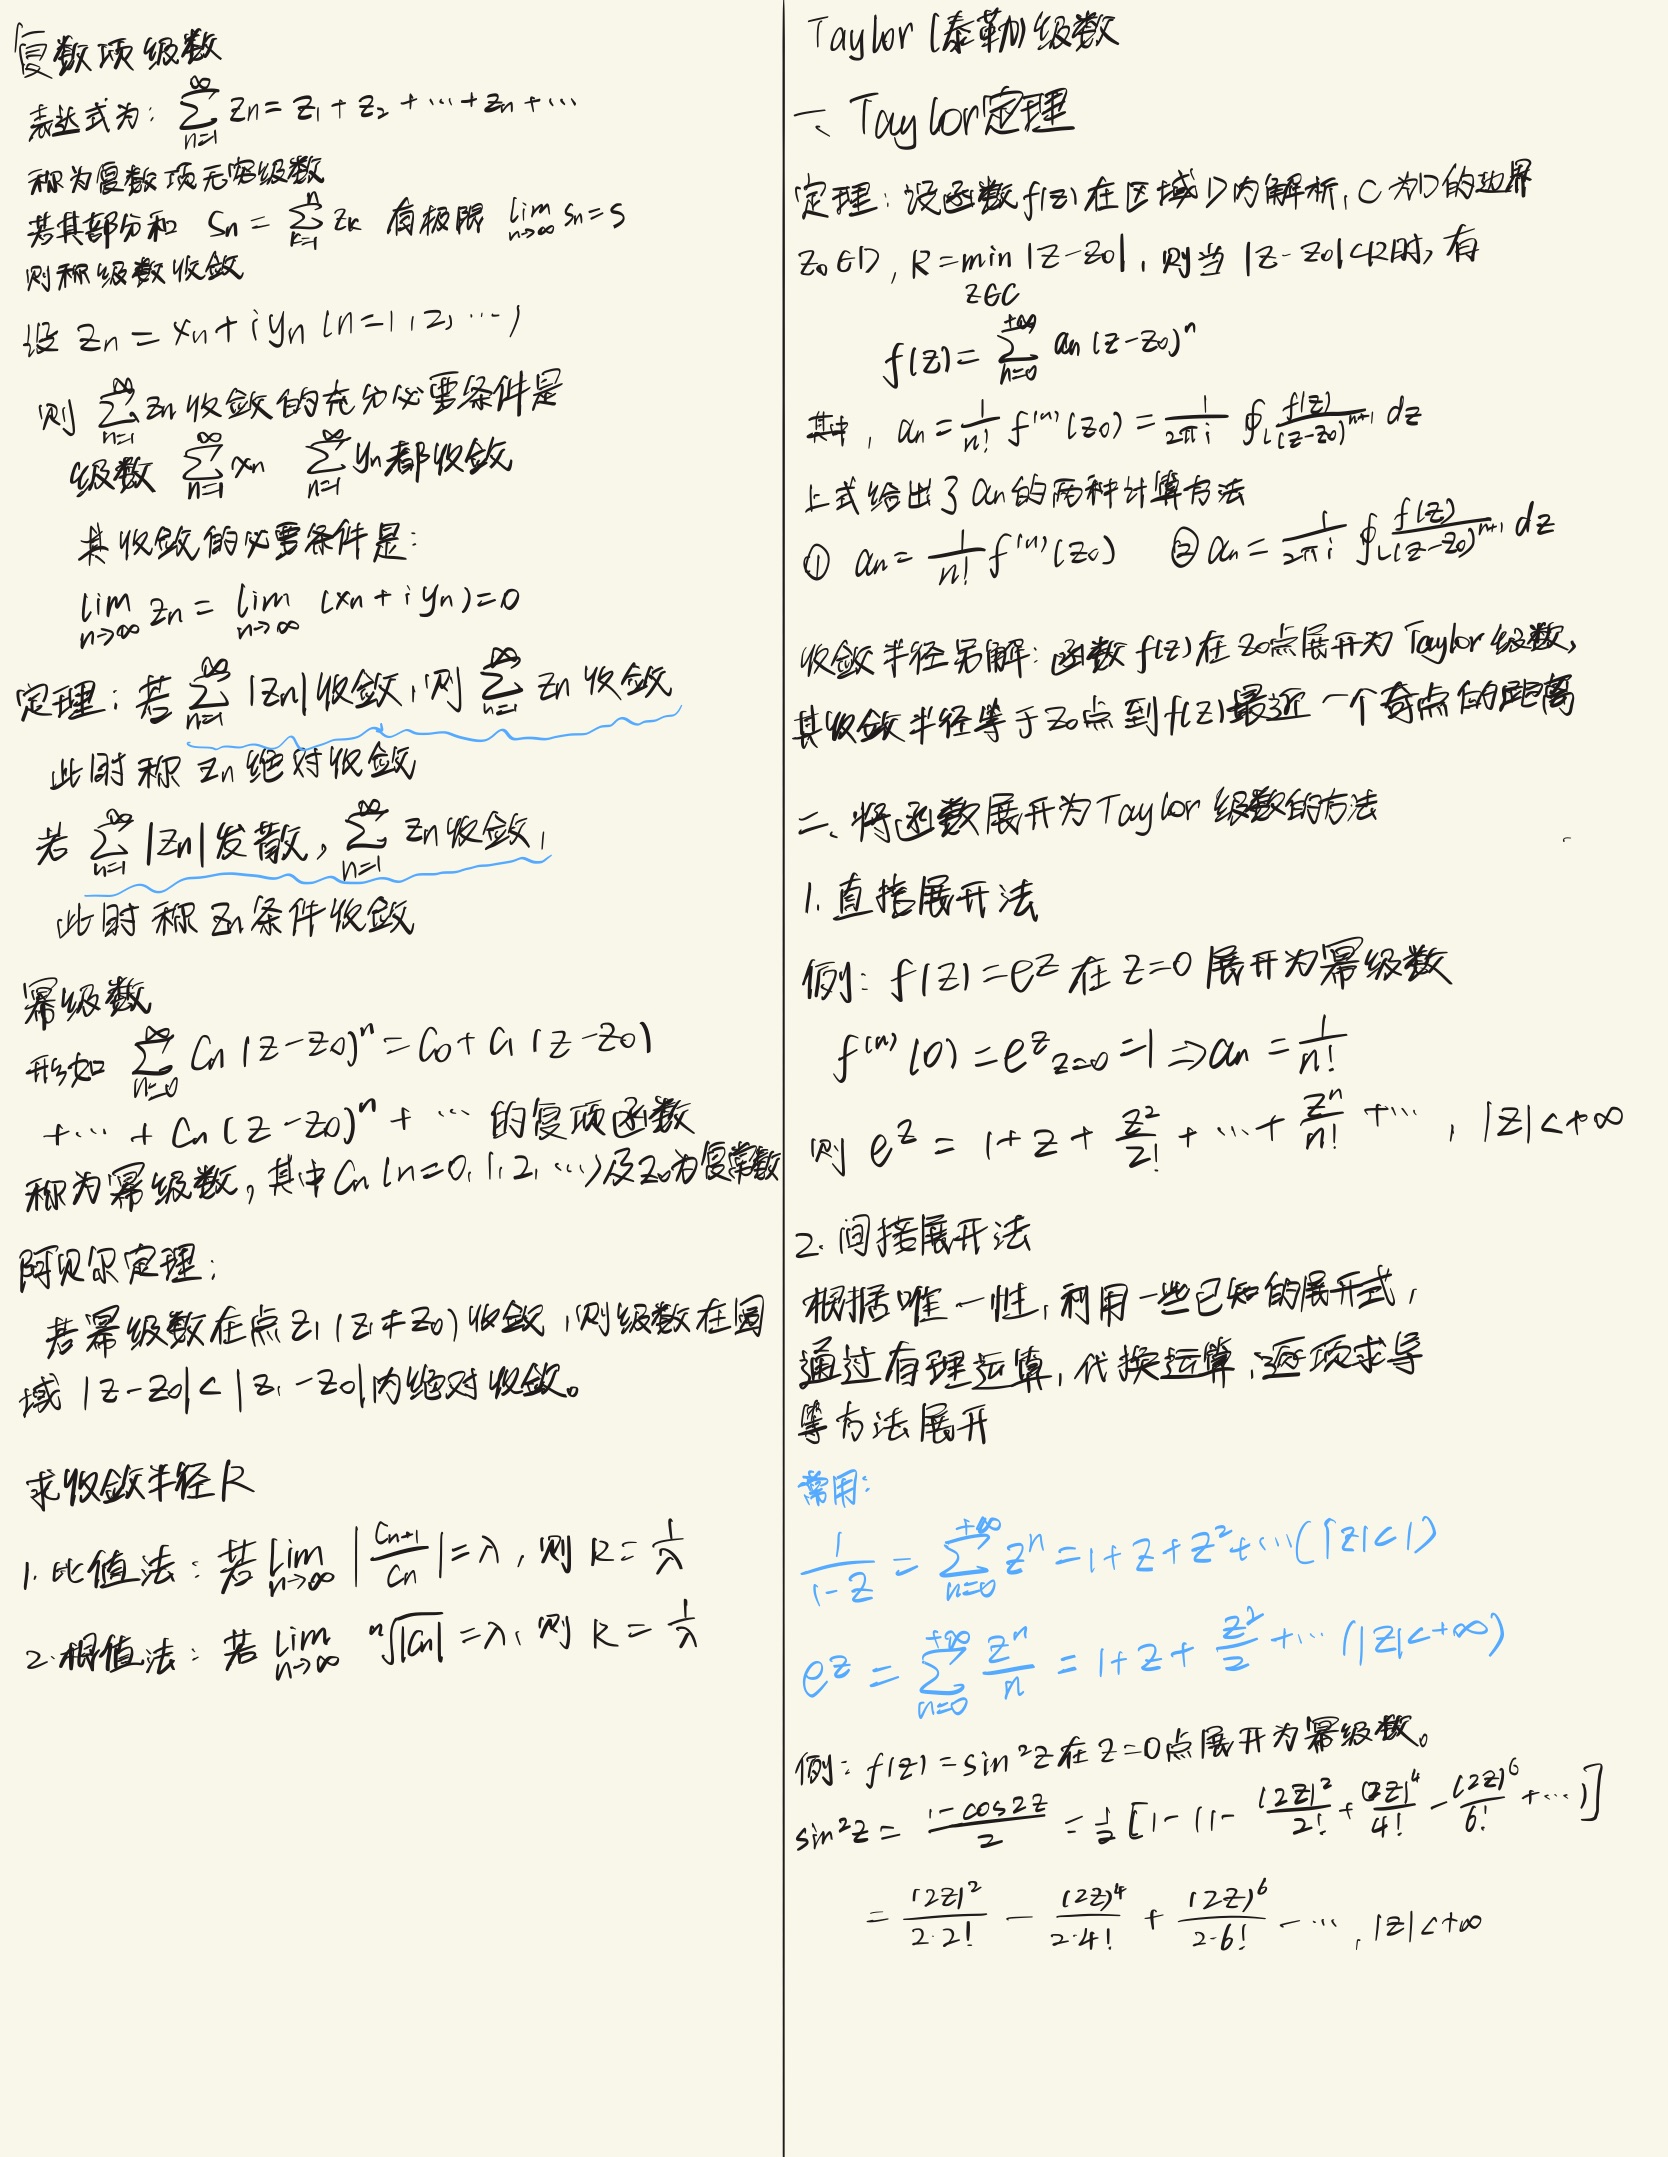 复数项级数
表达式为: ∑_{n=1}^{∞} z_n = z_1 + z_2 + ⋯ + z_n + ⋯
称为复数项无穷级数
若其部分和 S_n = ∑_{k=1}^{n} z_k 有极限 lim_{n→∞} S_n = S
则称级数收敛
设 z_n = x_n + i y_n (n=1,2,⋯)
则 ∑_{n=1}^{∞} z_n 收敛的充分必要条件是
级数 ∑_{n=1}^{∞} x_n ∑_{n=1}^{∞} y_n 都收敛
其收敛的必要条件是:
lim_{n→∞} z_n = lim_{n→∞} (x_n + i y_n) = 0
定理: 若 ∑_{n=1}^{∞} |z_n| 收敛, 则 ∑_{n=1}^{∞} z_n 收敛
此时称 z_n 绝对收敛
若 ∑_{n=1}^{∞} |z_n| 发散, ∑_{n=1}^{∞} z_n 收敛,
此时称 z_n 条件收敛
幂级数
形如 ∑_{n=0}^{∞} C_n (z-z_0)^n = C_0 + C_1 (z-z_0)
+⋯ + C_n (z-z_0)^n + ⋯ 的复项函数
称为幂级数, 其中 C_n (n=0,1,2,⋯) 及 z_0 为复常数
阿贝尔定理:
若幂级数在点 z_1 (z_1≠z_0) 收敛, 则级数在圆
域 |z-z_0| < |z_1-z_0| 内绝对收敛。
求收敛半径R
1. 比值法: 若 lim_{n→∞} |C_{n+1}/C_n| = λ, 则 R = 1/λ
2. 根值法: 若 lim_{n→∞} ⁿ√|C_n| = λ, 则 R = 1/λ
Taylor (泰勒) 级数
一、Taylor定理
定理: 设函数 f(z) 在区域 D 内解析, C 为D的边界
z_0∈D, R = min_{z∈C} |z-z_0|, 则当 |z-z_0|<R时, 有
f(z) = ∑_{n=0}^{+∞} a_n (z-z_0)^n
其中, a_n = 1/n! f^{(n)}(z_0) = 1/(2πi) ∮_L f(z)/(z-z_0)^{n+1} dz
上式给出了 a_n 的两种计算方法
① a_n = 1/n! f^{(n)}(z_0) ② a_n = 1/(2πi) ∮_L f(z)/(z-z_0)^{n+1} dz
收敛半径另解: 函数 f(z) 在 z_0点展开为 Taylor 级数,
其收敛半径等于 z_0 点到 f(z) 最近一个奇点的距离
二、将函数展开为 Taylor 级数的方法
1. 直接展开法
例: f(z) = e^z 在 z=0 展开为幂级数
f^{(n)}(0) = e^z_{z=0} = 1 ⇒ a_n = 1/n!
则 e^z = 1 + z + z^2/2! + ⋯ + z^n/n! + ⋯, |z|<+∞
2. 间接展开法
根据唯一性, 利用一些已知的展开式,
通过有理运算, 代换运算, 逐项求导
等方法展开
常用:
1/(1-z) = ∑_{n=0}^{+∞} z^n = 1 + z + z^2 + ⋯ (|z|<1)
e^z = ∑_{n=0}^{+∞} z^n/n = 1 + z + z^2/2 + ⋯ (|z|<+∞)
例: f(z) = sin^2z 在 z=0点展开为幂级数。
sin^2z = (1-cos2z)/2 = 1/2 [1-(1- (2z)^2/2! + (2z)^4/4! - (2z)^6/6! + ⋯)]
= (2z)^2/(2·2!) - (2z)^4/(2·4!) + (2z)^6/(2·6!) - ⋯, |z|<+∞